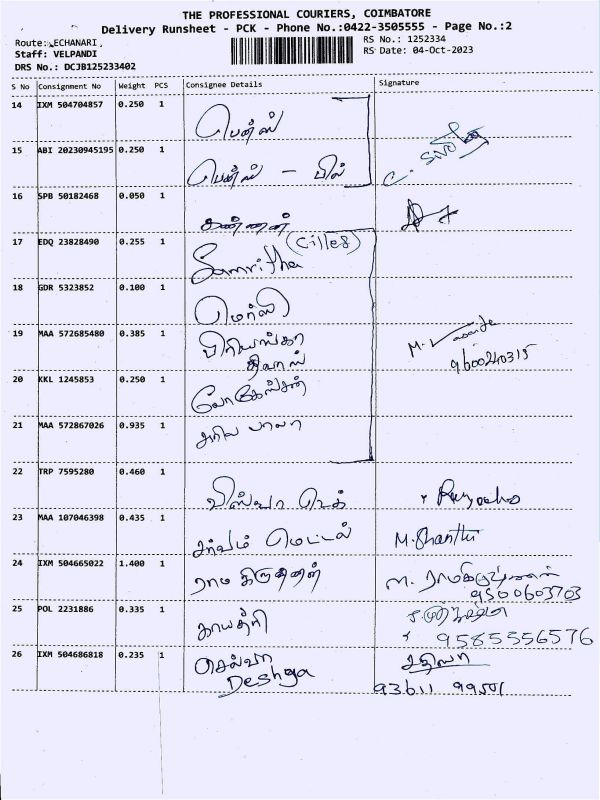 THE PROFESSIONAL COURIERS, COIMBATORE
Delivery Runsheet - PCK - Phone No.:0422-3505555 - Page No.:2
Route: ECHANARI,
RS No.: 1252334
Staff: VELPANDI
RS Date: 04-Oct-2023
DRS No.: DCJB125233402
S No Consignment No Weight PCS Consignee Details Signature
14 IXM 504704857 0.250 1
பென்ஸ்
15 ABI 20230945195 0.250 1
பென்ஸ் - பில்
16 SPB 50182468 0.050 1
கண்ணன்
17 EDQ 23828490 0.255 1
Samritha (Cilles)
18 GDR 5323852 0.100 1
மெர்ஸி
19 MAA 572685480 0.385 1
பிரியங்கா
திவாஸ்
M.
9600240315
20 KKL 1245853 0.250 1
லோகேஸ்வன்
21 MAA 572867026 0.935 1
பாலா
22 TRP 7595280 0.460 1
விஸ்வா டெக்
23 MAA 107046398 0.435 1
சர்வம் மெட்டல் M. Shanthi
24 IXM 504665022 1.400 1
ராம கிருஷ்ணன் M. ராமகிருஷ்ணன்
9500603703
25 POL 2231886 0.335 1
காயத்ரி
9585556576
26 IXM 504686818 0.235 1
செல்வா
Deshga
93611 99501